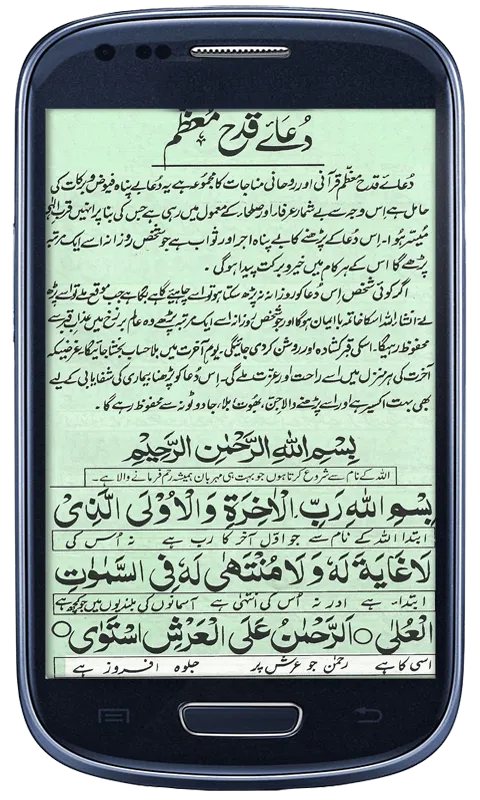 دُعائے قدح معظم
دُعائے قدح معظّم قرآنی اور روحانی مناجات کا مجموعہ ہے یہ دُعا بے پناہ فیوض و برکات کی
حامل ہے اس وجہ سے بے شمار عرفاء اور صلحاء کے معمول میں رہی ہے جس کی بنا پر انہیں قرب الٰہی
میسّر ہوا۔ اِس دُعا کے پڑھنے کا بے پناہ اجر اور ثواب ہے جو شخص روزانہ اسے ایک مرتبہ
پڑھے گا اس کے ہر کام میں خیر و برکت پیدا ہوگی۔
اگر کوئی شخص اِس دُعا کو روزانہ نہ پڑھ سکتا ہو تو اسے چاہیئے گاہے بگاہے جب موقع ملے تو اسے پڑھ
لے انشاء اللہ اسکا خاتمہ با ایمان ہوگا اور جو شخص روزانہ اسے ایک مرتبہ پڑھے وہ عالم برزخ میں عذاب قبر سے
محفوظ رہیگا۔ اسکی قبر کشادہ اور روشن کر دی جائیگی۔ یوم آخرت میں بلا حساب بخشا جائیگا۔ غرضیکہ
آخرت کی ہر منزل میں اسے راحت اور عزت ملے گی۔ اِس دُعا کو پڑھنا بیماری کی شفایابی کے لیے
بھی بہت اکسیر ہے اور اسے پڑھنے والا جن، بھوت، بلا، جادو ٹونہ سے محفوظ رہے گا۔
بِسْمِ اللهِ الرَّحْمٰنِ الرَّحِيْمِ
اللہ کے نام سے شروع کرتا ہوں جو بہت ہی مہربان ہمیشہ رحم فرمانے والا ہے۔
بِسْمِ اللهِ رَبِّ الْاٰخِرَةِ وَالْاُوْلٰى الَّذِىْ
ابتدا اللہ کے نام سے جو اوّل آخر کا رب ہے نہ اُس کی
لَا غَايَةَ لَهٗ وَلَا مُنْتَهٰى لَهٗ فِى السَّمٰوٰتِ
ابتداء ہے اور نہ اُس کی انتہٰی ہے آسمانوں کی بلندیوں میں جو کچھ ہے
الْعُلٰى ○ اَلرَّحْمٰنُ عَلَى الْعَرْشِ اسْتَوٰى ○
اسی کا ہے رحمٰن جو عرش پر جلوہ افروز ہے